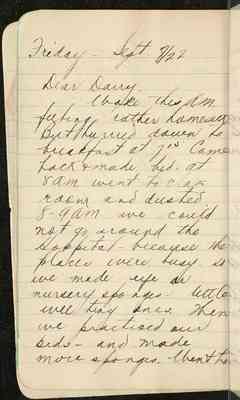 Friday - Sept. 8/22
Dear Dairy.
Woke this A.M.
feeling rather homesick
But hurried down to
breakfast at 7:00 Came
back & made bed. at
8 AM went to
room and dusted
8-9 AM we could
not go around the
hospital - because the
places were busy so
we made eye &
nursery sponges.
wee tiny ones. Then
we practised our
beds - and made
more sponges. Went to